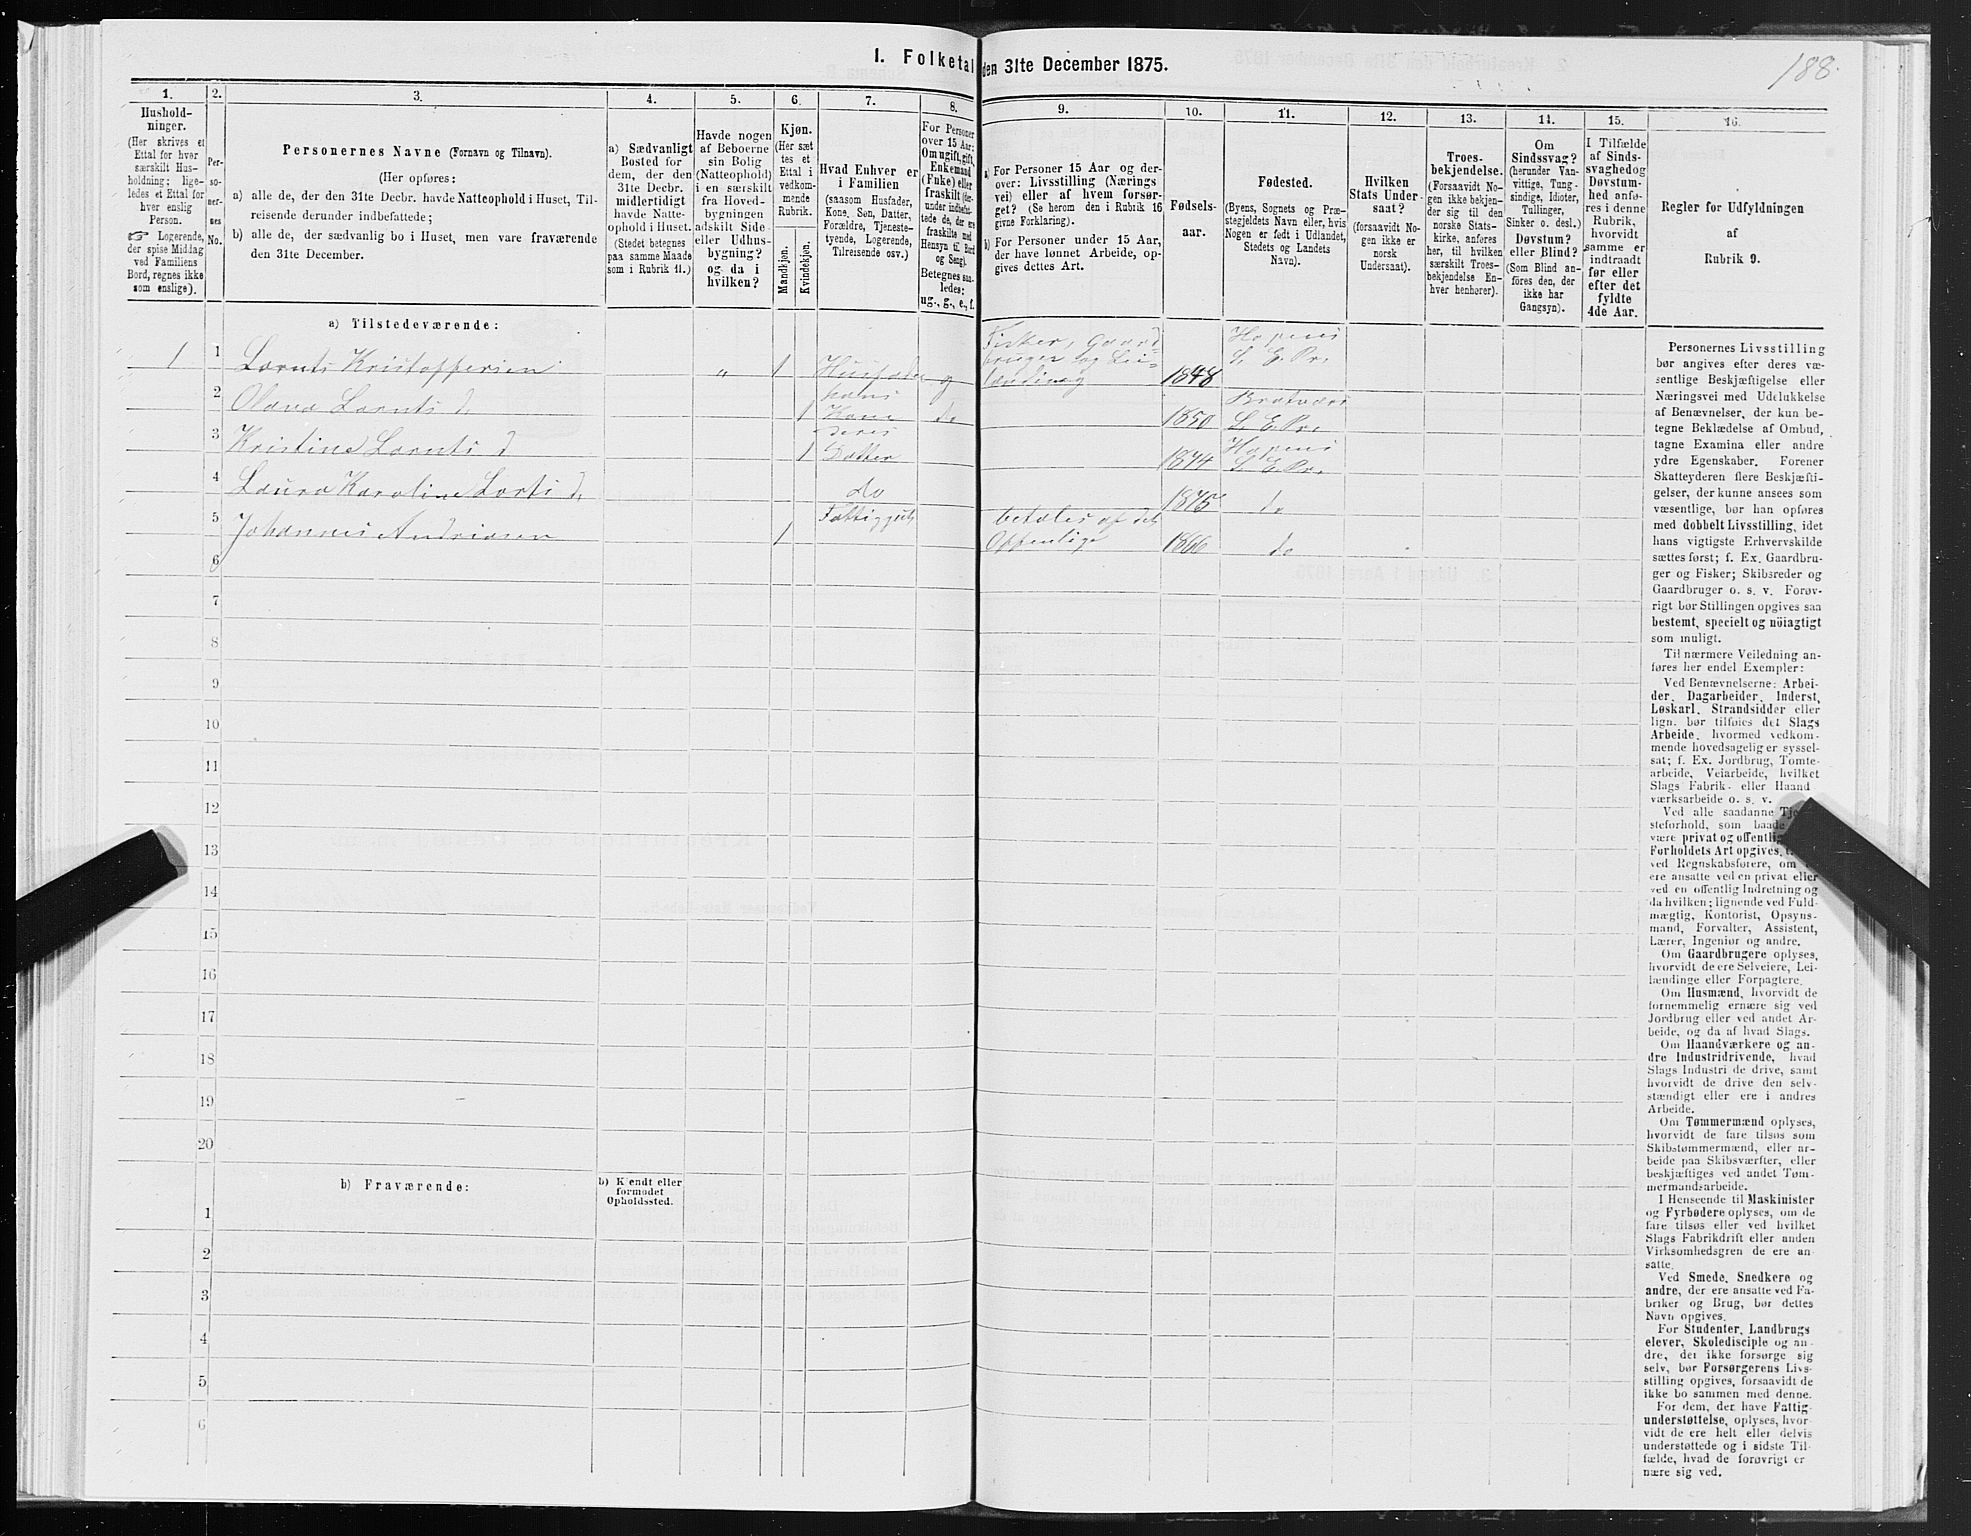 188.
I. Folketal den 31te December 1875.
1.
Hushold-
ninger.
(Her skrives et
Ettal for hver
særskilt Hus-
holdning; lige-
ledes et Ettal for
hver enslig
Person.
☞ Logerende,
der spise Middag
ved Familiens
Bord, regnes ikke
som enslige).
2.
Per-
so-
ner-
nes
No.
3.
Personernes Navne (Fornavn og Tilnavn).
(Her opføres:
a) alle de, der den 31te Decbr. havde Natteophold i Huset, Til-
reisende derunder indbefattede;
b) alle de, der sædvanlig bo i Huset, men vare fraværende
den 31te December.
4.
a) Sædvanligt
Bosted for
dem, der den
31te Decbr.
midlertidigt
havde Natte-
ophold i Huset.
(Stedet betegnes
paa samme Maade
som i Rubrik 11.)
5.
Havde nogen
af Beboerne
sin Bolig
(Natteophold)
i en særskilt
fra Hoved-
bygningen
adskilt Side-
eller Udhus-
bygning?
og da i
hvilken?
6.
Kjøn.
(Her sæt-
tes et
Ettal i
vedkom-
mende
Rubrik.
Mandkjøn.
Kvindekjøn.
7.
Hvad Enhver er
i Familien
(saasom Husfader,
Kone, Søn, Datter,
Forældre, Tjeneste-
tyende, Logerende,
Tilreisende osv.)
8.
For Personer
over 15 Aar:
Om ugift, gift,
Enkemand
(Enke) eller
fraskilt (der-
under indbefat-
tede de, der ere
fraskilte med
Hensyn til Bord
og Seng).
Betegnes saa-
ledes:
ug., g., e., f.
9.
a) For Personer 15 Aar og der-
over: Livsstilling (Nærings
vei) eller af hvem forsør-
get? (Se herom den i Rubrik 16
givne Forklaring).
b) For Personer under 15 Aar,
der have lønnet Arbeide, op-
gives dettes Art.
10.
Fødsels-
aar.
11.
Fødested.
(Byens, Sognets og Præ-
stegjeldets Navn eller, hvis
Nogen er født i Udlandet,
Stedets og Landets
Navn).
12.
Hvilken
Stats Under-
saat?
(forsaavidt No-
gen ikke er
norsk
Undersaat).
13.
Troes-
bekjendelse.
(Forsaavidt No-
gen ikke bekjen-
der sig til den
norske Stats-
kirke, anføres
her, til hvilken
særskilt Troes-
bekjendelse En-
hver henhører).
14.
Om
Sindssvag?
(herunder Van-
vittige, Tung-
sindige, Idioter,
Tullinger,
Sinker o. desl.)
Døvstum?
eller Blind?
(Som Blind an-
føres den, der
ikke har
Gangsyn).
15.
I Tilfælde
af Sinds-
svaghed og
Døvstum-
hed anfø-
res i denne
Rubrik,
hvorvidt
samme er
indtraadt
før eller
efter det
fyldte
4de Aar.
16.
Regler for Udfyldningen
af
Rubrik 9.
a) Tilstedeværende:
1 1 Lornts Kristoffersen „ 1 Husfader g Fisker, Gaard=
bruger og Lei=
lænding 1848 Hopens
S. E. Pr.
2 Olava Lornts d. 1 hans
Kone do 1850 Bratvær
S. E. Pr.
3 Kristine Lornts d 1 deres
Datter 1874 Hopens
S. E. Pr.
4 Laura Karoline Lorts d. do 1875 do
5 Johannes Andriasen 1 betales af det
Offenlige 1866 do
6
7
8
9
10
11
12
13
14
15
16
17
18
19
20
b) Fraværende:
b) Kjendt eller
formodet
Opholdssted.
1
2
3
4
5
6
Personernes Livsstilling
bør angives efter deres væ-
sentlige Beskjæftigelse eller
Næringsvei med Udelukkelse
af Benævnelser, der kun be-
tegne Beklædelse af Ombud,
tagne Examina eller andre
ydre Egenskaber. Forener
Skatteyderen flere Beskjæfti-
gelser, der kunne ansees som
væsentlige, bør han opføres
med dobbelt Livsstilling, idet
hans vigtigste Erhvervskilde
sættes først; f. Ex. Gaardbru-
ger og Fisker; Skibsreder og
Gaardbruger o. s. v. Forøv-
rigt bør Stillingen opgives saa
bestemt, specielt og nöiagtigt
som muligt.
Til nærmere Veiledning an-
føres her endel Exempler:
Ved Benævnelserne: Arbei-
der, Dagarbeider, Inderst,
Løskarl, Strandsidder eller
lign. bør tilføies det Slags
Arbeide, hvormed vedkom-
mende hovedsagelig er syssel-
sat; f. Ex. Jordbrug, Tomte-
arbeide, Veiarbeide, hvilket
Slags Fabrik- eller Haand
værksarbeide o. s. v.
Ved alle saadanne
steforhold, som baade
være privat og
Forholdets Art opgives,
ved Regnskabsførere, om
ere ansatte ved en privat eller
ved en offentlig Indretning og
da hvilken; lignende ved Fuld-
mægtig, Kontorist, Opsyns-
mand, Forvalter, Assistent,
Lærer, Ingeniør og andre.
Om Gaardbrugere oplyses,
hvorvidt de ere Selveiere, Lei-
lændinge eller Forpagtere.
Om Husmænd, hvorvidt de
fornemmelig ernære sig ved
Jordbrug eller ved andet Ar-
beide, og da af hvad Slags.
Om Haandværkere og an-
dre Industridrivende, hvad
Slags Industri de drive, samt
hvorvidt de drive den selv-
stændigt eller ere i andres
Arbeide.
Om Tømmermænd oplyses,
hvorvidt de fare tilsøs som
Skibstømmermænd, eller ar-
beide paa Skibsværfter, eller
beskjæftiges ved andet Tøm-
mermandsarbeide.
I Henseende til Maskinister
og Fyrbødere oplyses, om de
fare tilsøs eller ved hvilket
Slags Fabrikdrift eller anden
Virksomhedsgren de ere an-
satte.
Ved Smede, Snedkere og
andre, der ere ansatte ved Fa-
briker og Brug, bør dettes
Navn opgives.
For Studenter, Landbrugs
elever, Skoledisciple og an-
dre, det ikke forsørge sig
selv, bør Forsørgerens Livs-
stilling opgives, forsaavidt de
ikke bo sammen med denne.
For dem, der have Fattig-
understøttelse, oplyses, hvor-
vidt de ere helt eller delvis
understøttede og i sidste Til-
fælde, hvad de forøvrigt er
nære sig ved.